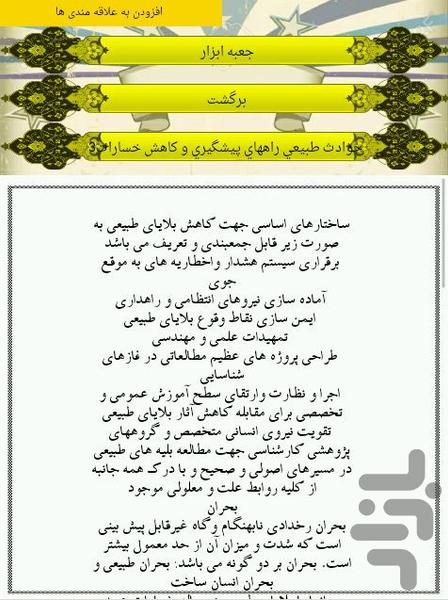 افزودن به علاقه مندی ها
جعبه ابزار
برگشت
حوادث طبيعي راههاي پيشگيري و کاهش خسارات3
ساختارهای اساسی جهت کاهش بلایای طبیعی به
صورت زیر قابل جمعبندی و تعریف می باشد
برقراری سیستم هشدار واخطاریه های به موقع
جوی
آماده سازی نیروهای انتظامی و راهداری
ایمن سازی نقاط وقوع بلایای طبیعی
تمهیدات علمی و مهندسی
طراحی پروژه های عظیم مطالعاتی در فازهای
شناسایی
اجرا و نظارت وارتقای سطح آموزش عمومی و
تخصصی برای مقابله کاهش آثار بلایای طبیعی
تقویت نیروی انسانی متخصص و گروههای
پژوهشی کارشناسی جهت مطالعه بلیه های طبیعی
در مسیرهای اصولی و صحیح و با درک همه جانبه
از کلیه روابط علت و معلولی موجود
بحران
بحران رخدادی نابهنگام وگاه غیرقابل پیش بینی
است که شدت و میزان آن از حد معمول بیشتر
است. بحران بر دو گونه می باشد: بحران طبیعی و
بحران انسان ساخت
بازار